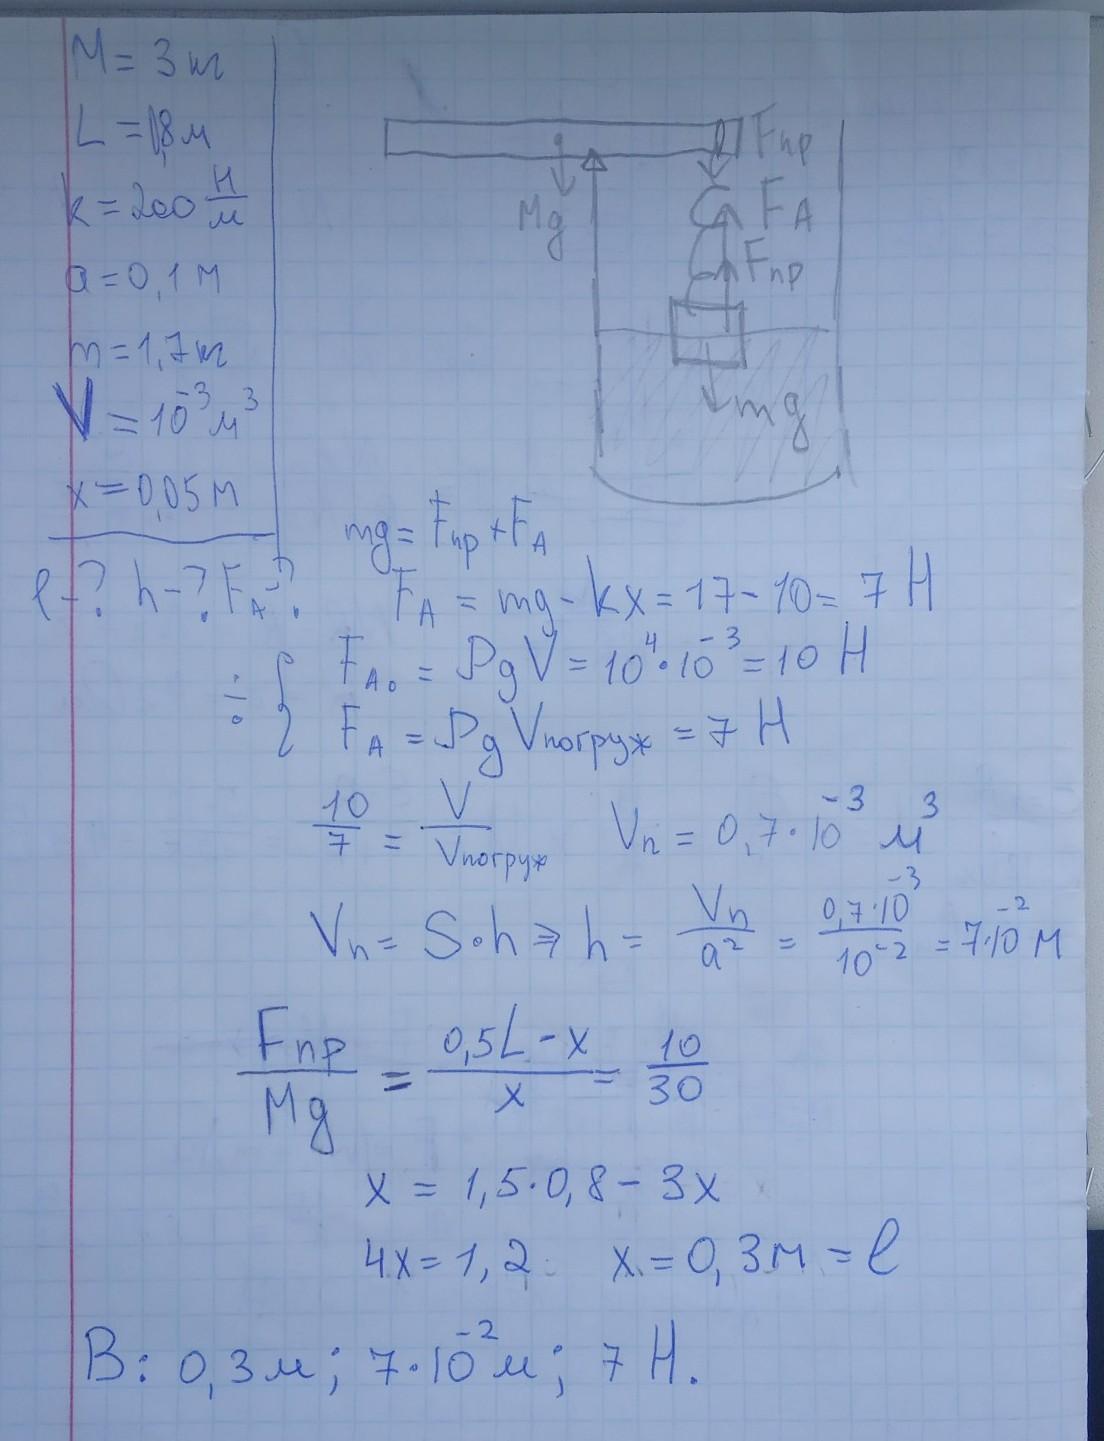 M = 3 кг
L = 0,8 м
k = 200 Н/м
a = 0,1 м
m = 1,7 кг
V = 10⁻³ м³
x = 0,05 м
l - ? h - ? F_A - ?
F_пр
Mg
F_A
F_пр
mg
mg = F_пр + F_A
F_A = mg - kx = 17 - 10 = 7 Н
÷ { F_A₀ = ρgV = 10⁴ · 10⁻³ = 10 Н
F_A = ρg V_погруж = 7 Н
10/7 = V/V_погруж V_п = 0,7 · 10⁻³ м³
V_п = S · h ⇒ h = V_п/a² = 0,7·10⁻³/10⁻² = 7·10⁻² м
F_пр/Mg = (0,5L - x)/x = 10/30
x = 1,5 · 0,8 - 3x
4x = 1,2 x = 0,3 м = l
В: 0,3 м; 7·10⁻² м; 7 Н.